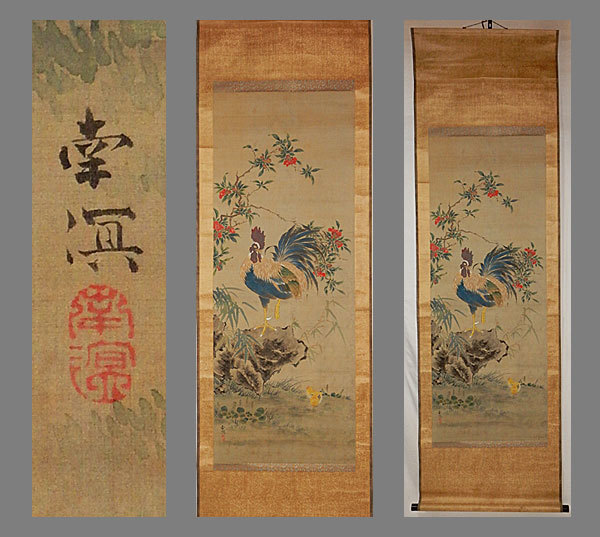 南溟
南溟